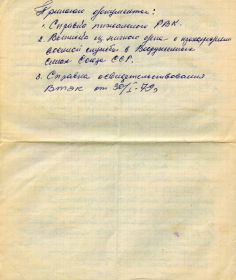 Прилагаю документы:
1. Справка РВК.
2. Выписка из личного дела о прохождении
военной службы в Вооруженных
силах Союза ССР.
3. Справка освидетельствования
ВТЭК от 30/I-79г.